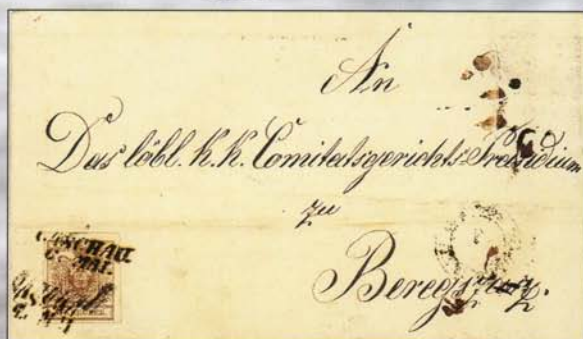 An
Das löbl. k. k. Comitatsgerichts-Preasidium
zu
Beregszasz.
CASCHAU
6. MAI.